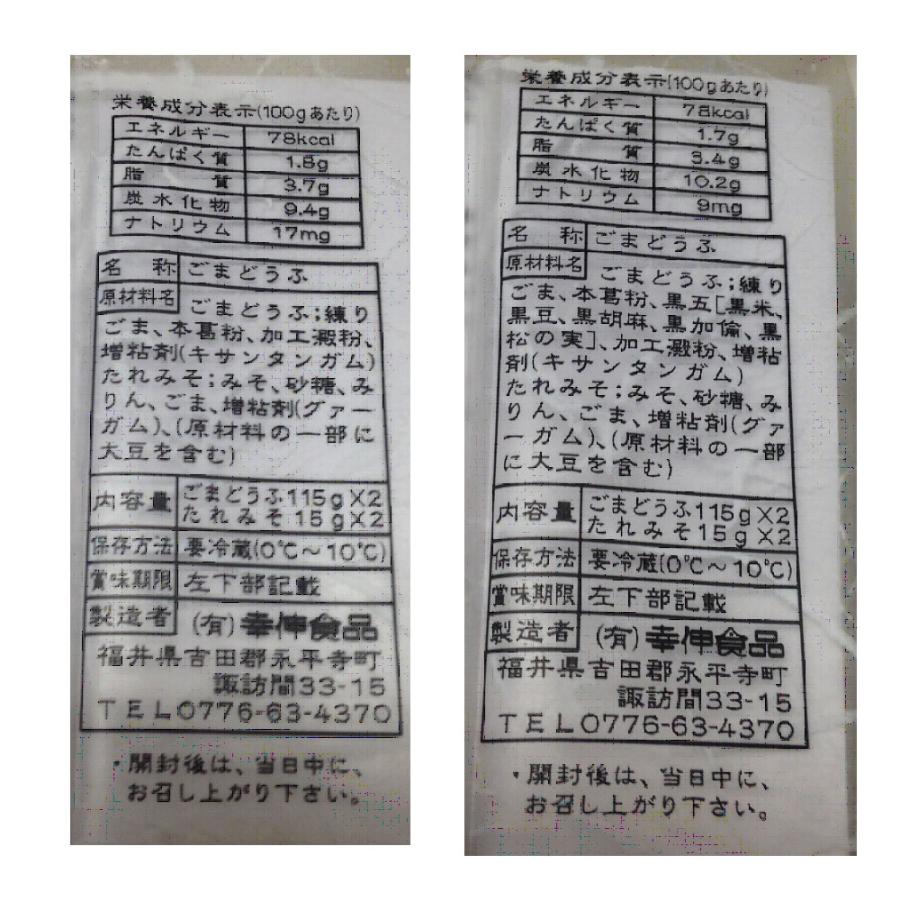 栄養成分表示(100gあたり)
エネルギー 78kcal
たんぱく質 1.8g
脂質 3.7g
炭水化物 9.4g
ナトリウム 17mg
名称 ごまどうふ
原材料名 ごまどうふ;練り
ごま、本葛粉、加工澱粉、
増粘剤(キサンタンガム)
たれみそ;みそ、砂糖、み
りん、ごま、増粘剤(グァー
ガム)、(原材料の一部に
大豆を含む)
内容量 ごまどうふ115g×2
たれみそ15g×2
保存方法 要冷蔵(0℃～10℃)
賞味期限 左下部記載
製造者 (有)幸伸食品
福井県吉田郡永平寺町
諏訪間33-15
TEL0776-63-4370
・開封後は、当日中に、
お召し上がり下さい。
栄養成分表示(100gあたり)
エネルギー 78kcal
たんぱく質 1.7g
脂質 3.4g
炭水化物 10.2g
ナトリウム 9mg
名称 ごまどうふ
原材料名 ごまどうふ;練り
ごま、本葛粉、黒五[黒米、
黒豆、黒胡麻、黒加倫、黒
松の実]、加工澱粉、増粘
剤(キサンタンガム)
たれみそ;みそ、砂糖、み
りん、ごま、増粘剤(グァ
ーガム)、(原材料の一部
に大豆を含む)
内容量 ごまどうふ115g×2
たれみそ15g×2
保存方法 要冷蔵(0℃～10℃)
賞味期限 左下部記載
製造者 (有)幸伸食品
福井県吉田郡永平寺町
諏訪間33-15
TEL0776-63-4370
・開封後は、当日中に、
お召し上がり下さい。